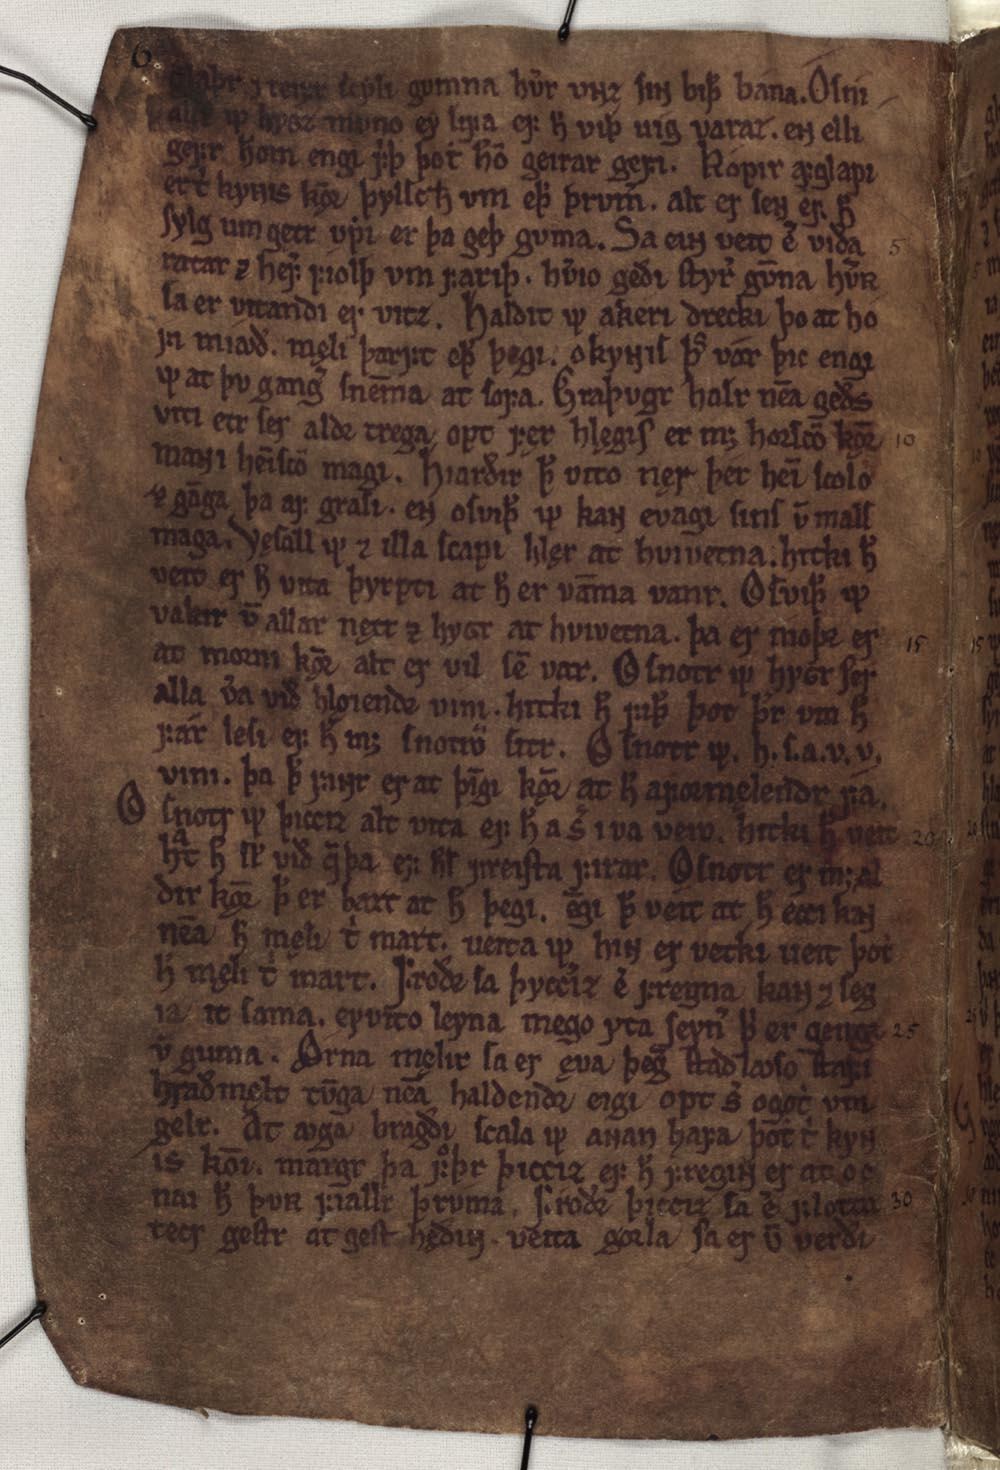 6
glaþr ⁊ reifr scyli gumna hu̾r vnz sıɴ bıþr bana. Osni
allr ꝩ hygz muno ey lifa ef h̅ viþ uíg varaz. en elli
gefr hom engi friþ þot ho̅ geirar gefi. Kopir afglapi
er t̍ kynis kø̅r þylſc h̅ vm eþ̅ þrvm̅. alt er ſeɴ ef h̅
ſylg um getr vp̍i er þa geþ guma. Sa eiɴ veit e̅ viða 5
ratar ⁊ hef̅ fiolþ vm fariþ. hu̾io geði ſtyr̅ gu̅na hu̾ʀ
ſa er vitandi er vitz. Haldit ꝩ a keri drecki þo at ho
fi mioð. męli þarft eþ̅ þegi. okyɴiſ þ̅ſ vár þic engi
ꝩ at þv gang̅ ſnem̅ma at ſofa. Graþugr halr ne̅a geðs
viti etr ſer aldr trega opt fęr hlęgiſ er mꝫ horſco̅ kø̅r 10
maɴi heı̅ſco̅ magi. Hiarðir þ̅ vito nęr þęr heı̅ ſcolo
⁊ ga̅ga þa af graſi. en oſviþr̅ ꝩ kaɴ evagi ſinſ v̅ malſ
maga. Veſall ꝩ ⁊ illa ſcapi hlęr at hvivetna. hitki h̅
veit er h̅ vita þyrpti at h̅ er va̅ma vanr. Oſviþr̅ ꝩ
vakir v̅ allar nętr ⁊ hygr at hvivetna. þa er moþr er 15
at morni kø̅r alt er vil ſe̅ var. Oſnotr ꝩ hygr ſer
alla v̾a við hlęiendr vini. hitki h̅ fiþr̅ þot þr̅ vm h̅
fár leſi ef h̅ mꝫ snotro̅ ſitr. Oſnotr ꝩ. h. ſ. a. v. v.
vini. þa þ̅ fiɴr er at þı̅gi kø̅r at h̅ a formęlendr fá.
Oſnotr ꝩ þicciz alt vita ef h̅ a ſ̾ i vá vero. hitki h̅ veit 20
hͣt h̅ ſl̅ við q̅þa ef h̅ſ freiſta firar. Oſnotr er mꝫ al
dir kø̅r þ̅ er bazt at h̅ þegi. e̅gi þ̅ veit at h̅ ecci kaɴ
ne̅a h̅ męli t̍ mart. veita ꝩ hiɴ er vetki veit þot
h̅ męli t̍ mart. Froðr ſa þycciz e̅ fregna kaɴ ⁊ ſeg
ia it ſama. eyvito leyna mego yta ſeyn̅ þ̅ er gengr 25
v̅ guma. Orna męlir ſa er ęva þeg̅ ſtaðlauſo ſtafi
hraðmęlt tu̅ga ne̅a haldendr eigi opt ſ̾ ogot vm
gelr. At auga bragði ſcala ꝩ aɴan hafa þot t̍ kyɴ
is ko̅i. margr þa froþr þicciz ef h̅ fregiɴ er at oc
nai h̅ þvʀ fiallr þruma. Froðr þicciz ſa e̅ flotta 30
tecr geſtr at geſt hęðiɴ. veita gorla ſa er v̅ verði